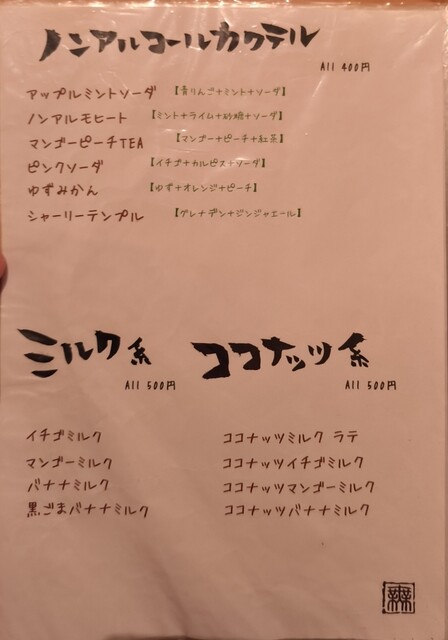 ノンアルコールカクテル
All 400円
アップルミントソーダ 【青りんご+ミント+ソーダ】
ノンアルモヒート 【ミント+ライム+砂糖+ソーダ】
マンゴーピーチTEA 【マンゴー+ピーチ+紅茶】
ピンクソーダ 【イチゴ+カルピス+ソーダ】
ゆずみかん 【ゆず+オレンジ+ピーチ】
シャーリーテンプル 【グレナデン+ジンジャエール】
ミルク系
All 500円
イチゴミルク
マンゴーミルク
バナナミルク
黒ごまバナナミルク
ココナッツ系
All 500円
ココナッツミルク ラテ
ココナッツイチゴミルク
ココナッツマンゴーミルク
ココナッツバナナミルク